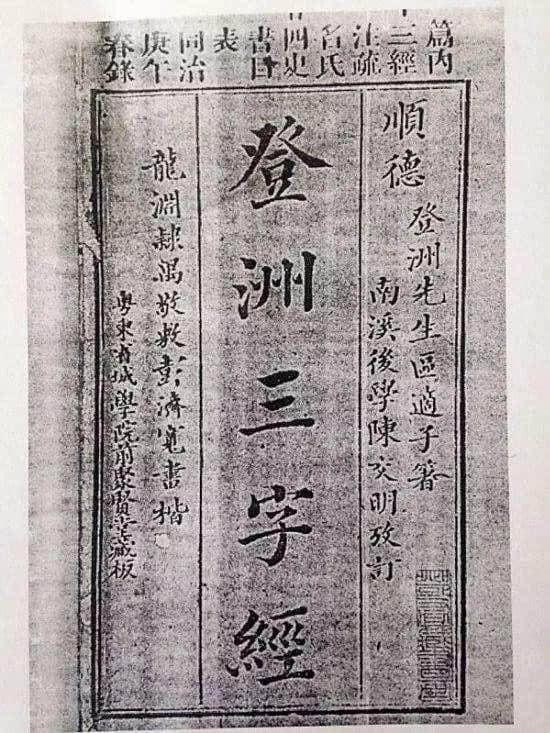 篇內
十三經
注疏
名氏
廿四史
書目
表
同治
庚午
春錄
順德
登洲先生區適子著
南溪後學陳文明攷訂
登洲三字經
龍淵隸禺敬敷彭濟寬書楷
粵東省城學院前聚賢堂藏板